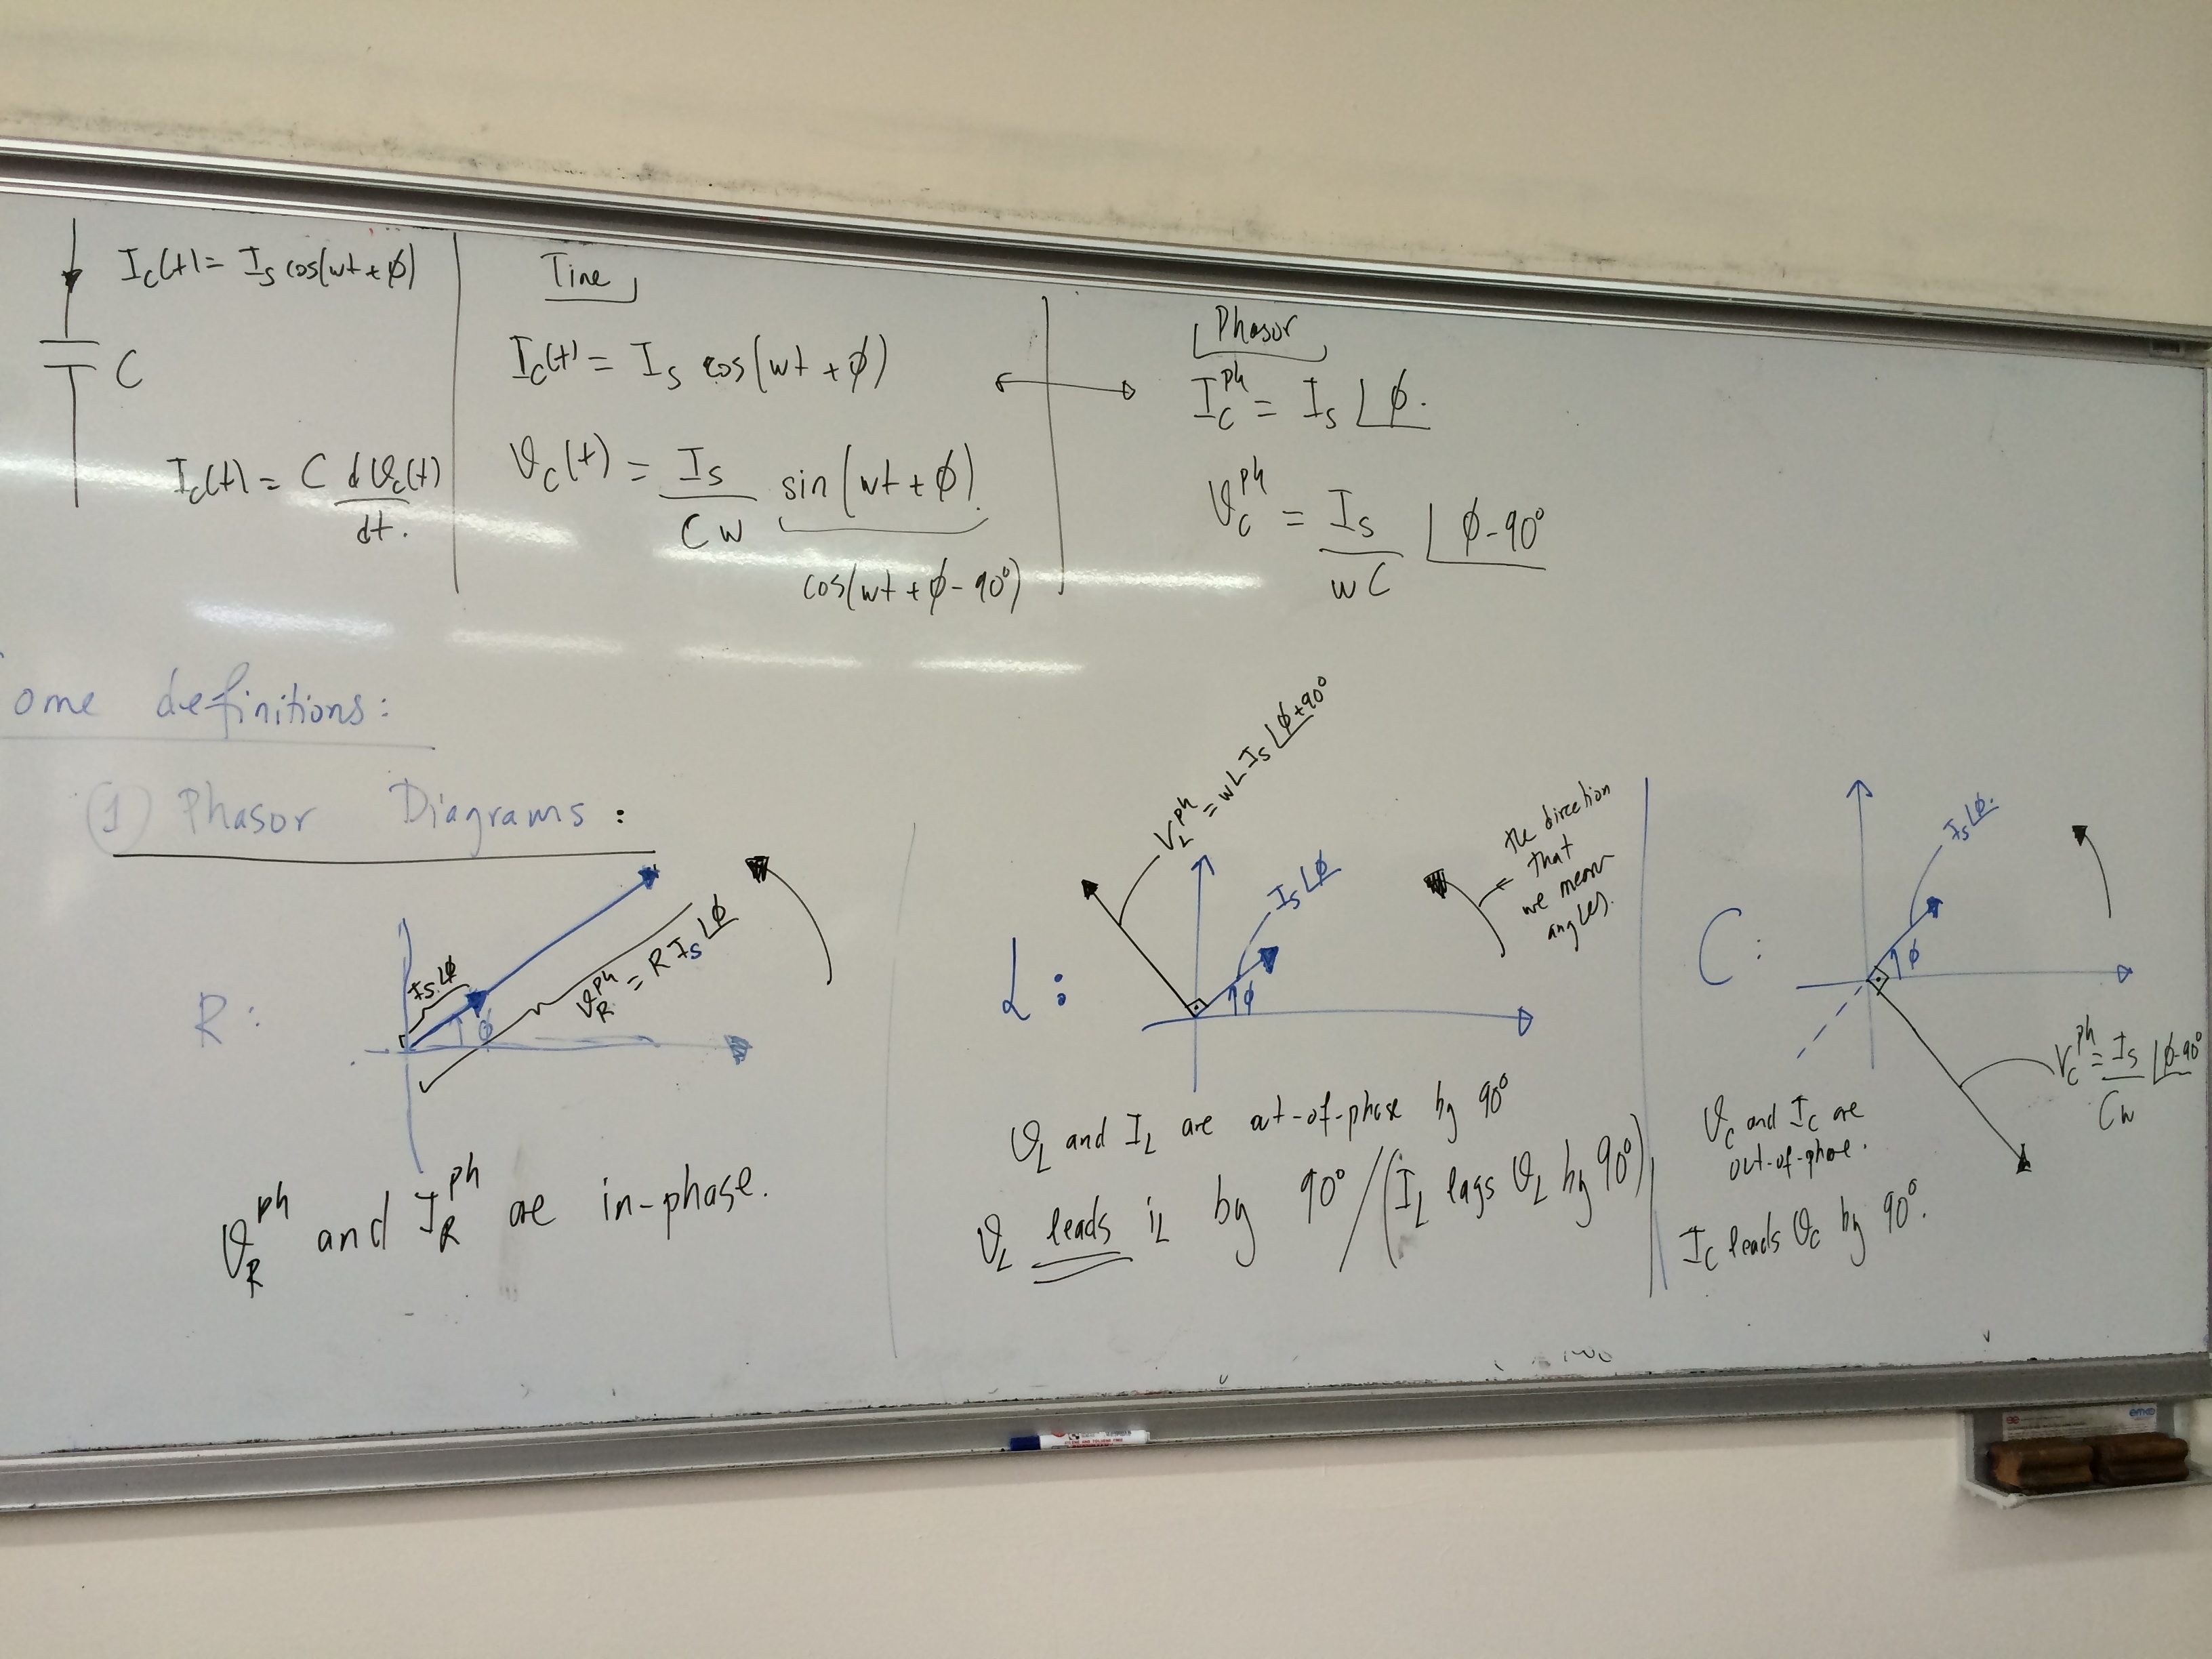 I_C(t) = I_S cos(wt + φ)
C
I_C(t) = C dϑ_C(t)/dt.
Time
I_C(t) = I_S cos(wt + φ)
ϑ_C(t) = I_S/Cw sin(wt + φ)
cos(wt + φ - 90°)
Phasor
I_C^ph = I_S ∠φ.
ϑ_C^ph = I_S/wC ∠φ-90°
ome definitions:
(1) Phasor Diagrams:
R:
I_S ∠φ
φ
ϑ_R^ph = R I_S ∠φ
ϑ_R^ph and I_R^ph are in-phase.
L:
V_L^ph = wL I_S ∠φ+90°
I_S ∠φ
φ
the direction
that
we mean
angles.
ϑ_L and I_L are out-of-phase by 90°
ϑ_L leads i_L by 90° / (I_L lags ϑ_L by 90°)
C:
I_S ∠φ.
φ
V_C^ph = I_S/Cw ∠φ-90°
ϑ_C and I_C are
out-of-phase.
I_C leads ϑ_C by 90°.